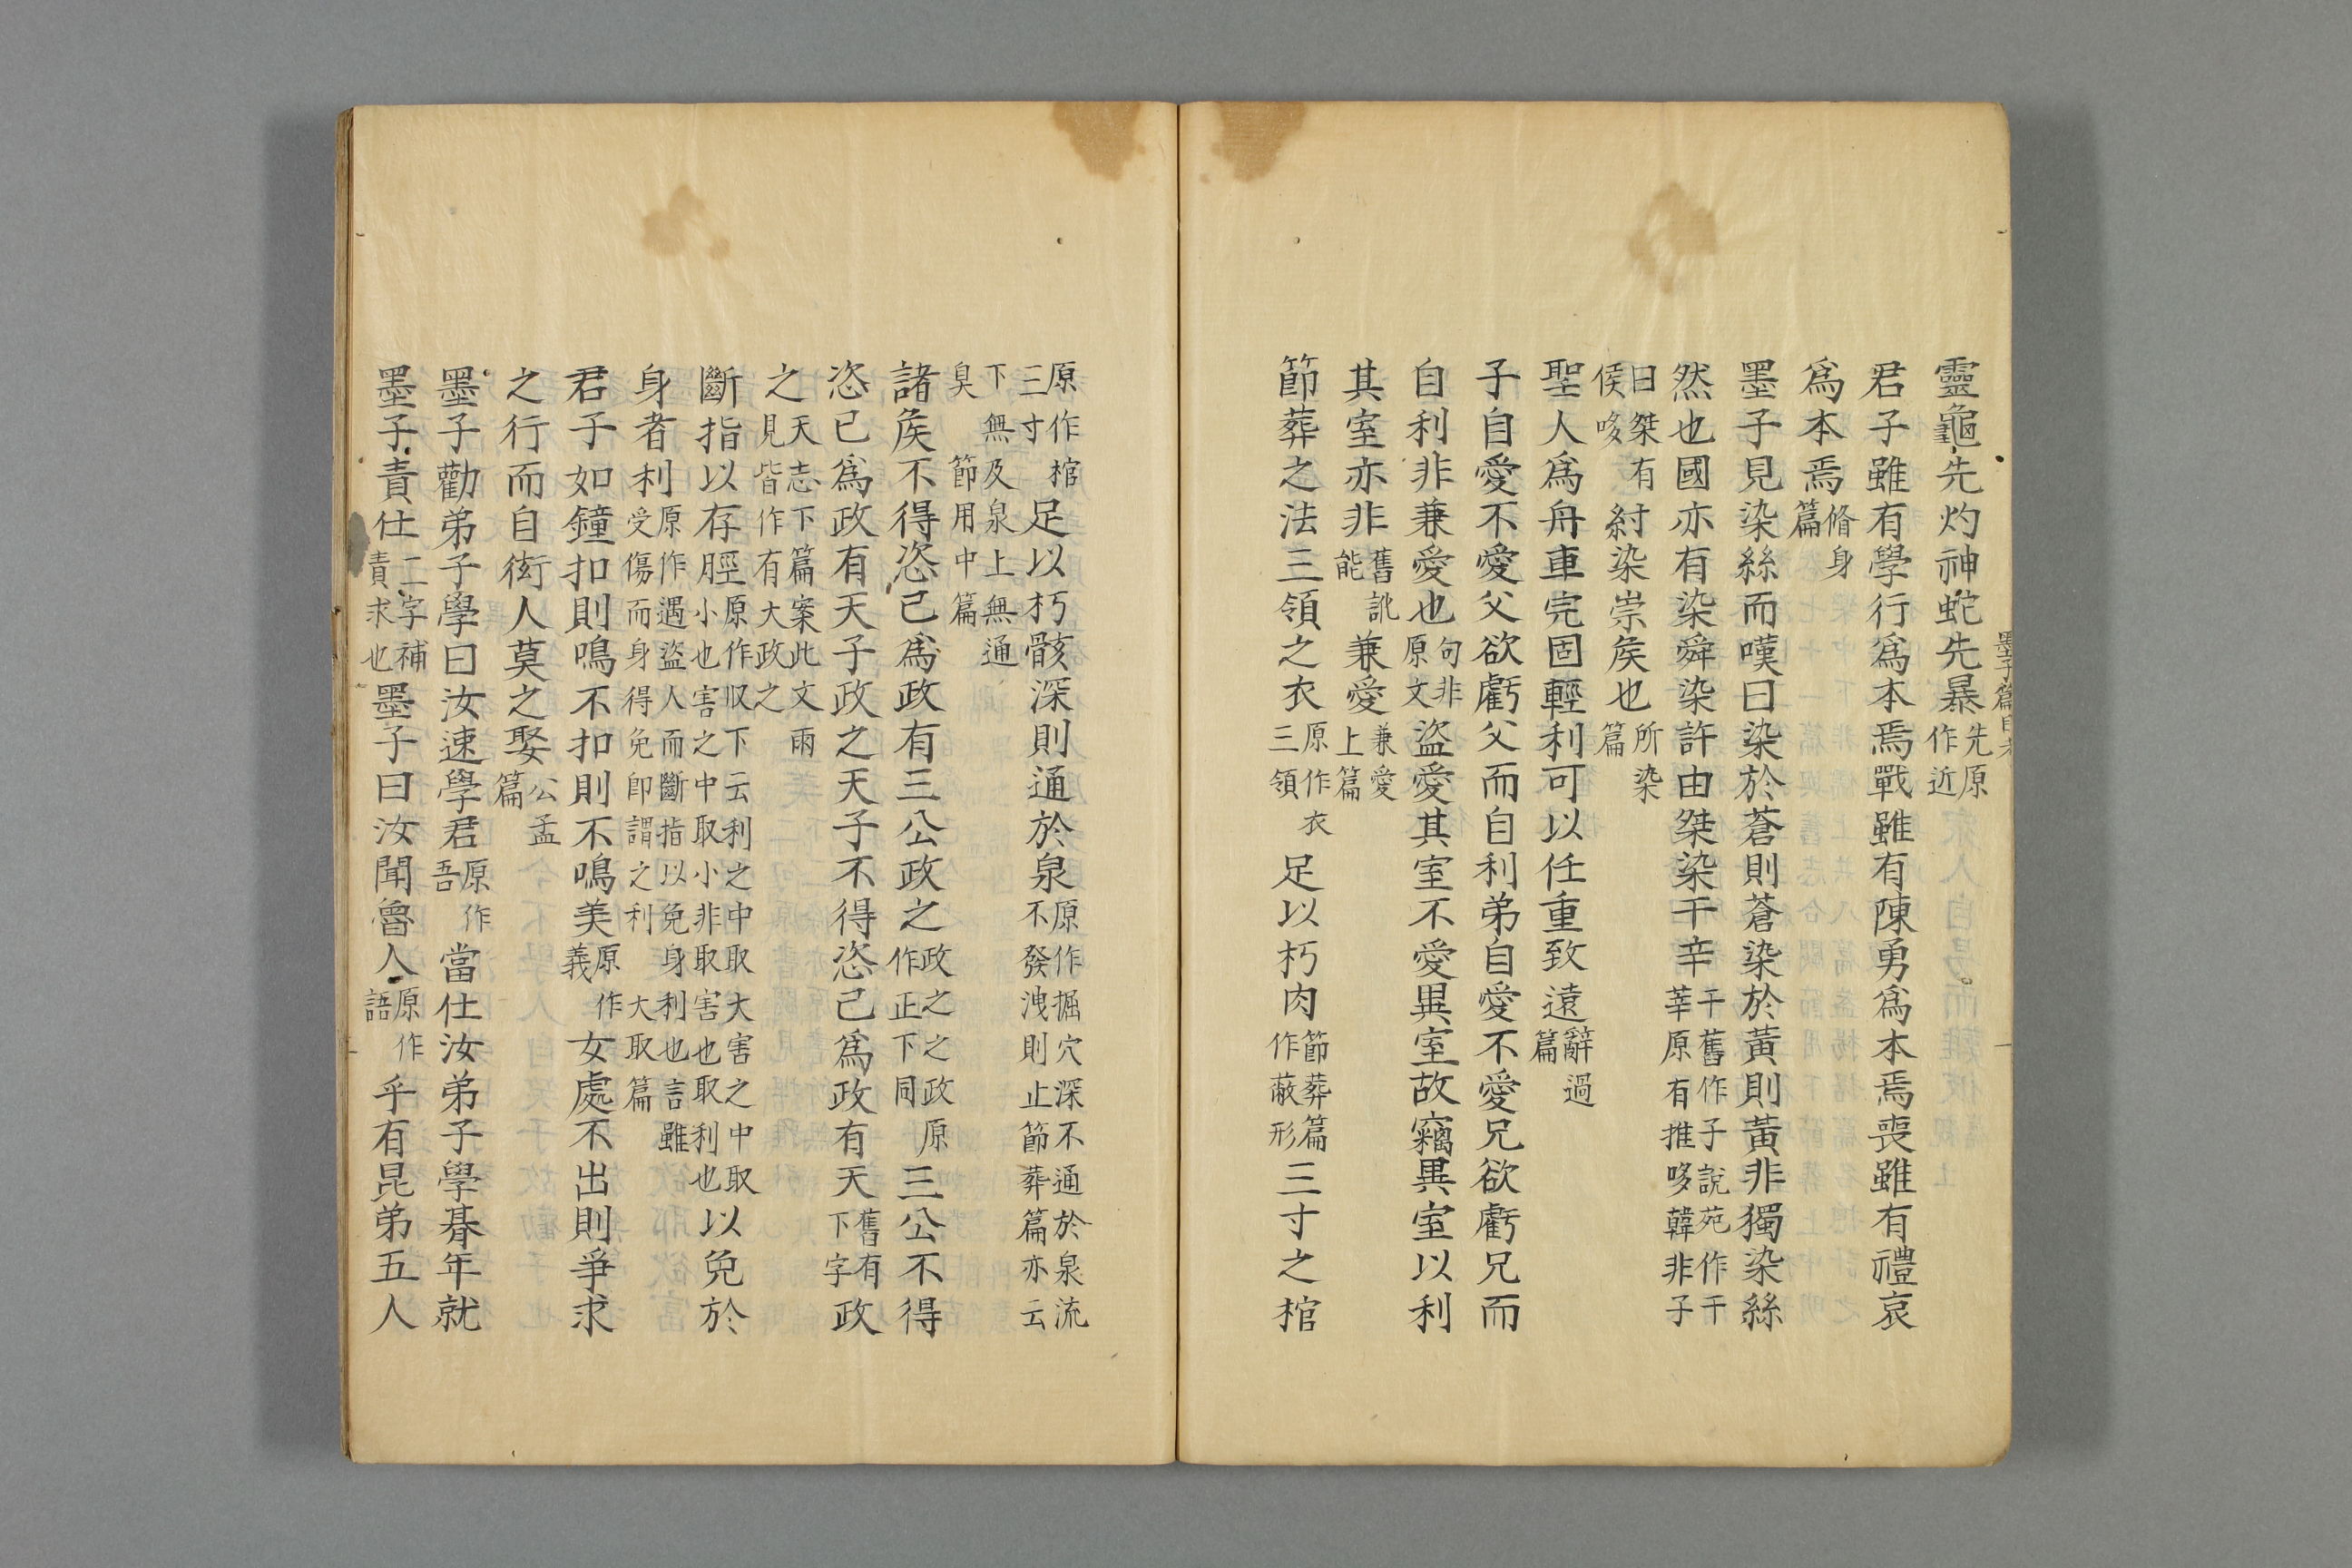 墨子篇目考
靈龜先灼神蛇先暴先原作近
君子雖有學行爲本焉戰雖有陳勇爲本焉喪雖有禮哀
爲本焉脩身篇
墨子見染絲而嘆曰染於蒼則蒼染於黃則黃非獨染絲
然也國亦有染舜染許由桀染干辛干舊作子說苑作干莘原有推哆韓非子
曰桀有侯哆紂染崇矦也所染篇
聖人爲舟車完固輕利可以任重致遠辭過篇
子自愛不愛父欲虧父而自利弟自愛不愛兄欲虧兄而
自利非兼愛也句非原文盜愛其室不愛異室故竊異室以利
其室亦非舊訛能兼愛兼愛上篇
節葬之法三領之衣原作衣三領足以朽肉節葬篇作蔽形三寸之棺
原作棺三寸足以朽骸深則通於泉原作掘穴深不通於泉流不發洩則止節葬篇亦云
下無及泉上無通臭節用中篇
諸矦不得恣己爲政有三公政之政之之政原作正下同三公不得
恣己爲政有天子政之天子不得恣己爲政有天舊有下字政
之天志下篇案此文兩見皆作有大政之
斷指以存脛原作㕝下云利之中取大害之中取小也害之中取小非取害也取利也以免於
身者利原作遇盜人而斷指以免身利也言雖受傷而身得免卽謂之利大取篇
君子如鐘扣則鳴不扣則不鳴美原作義女處不出則爭求
之行而自衒人莫之娶公孟篇
墨子勸弟子學曰汝速學君原作吾當仕汝弟子學朞年就
墨子責仕二字補責求也墨子曰汝聞魯人原作語乎有昆弟五人